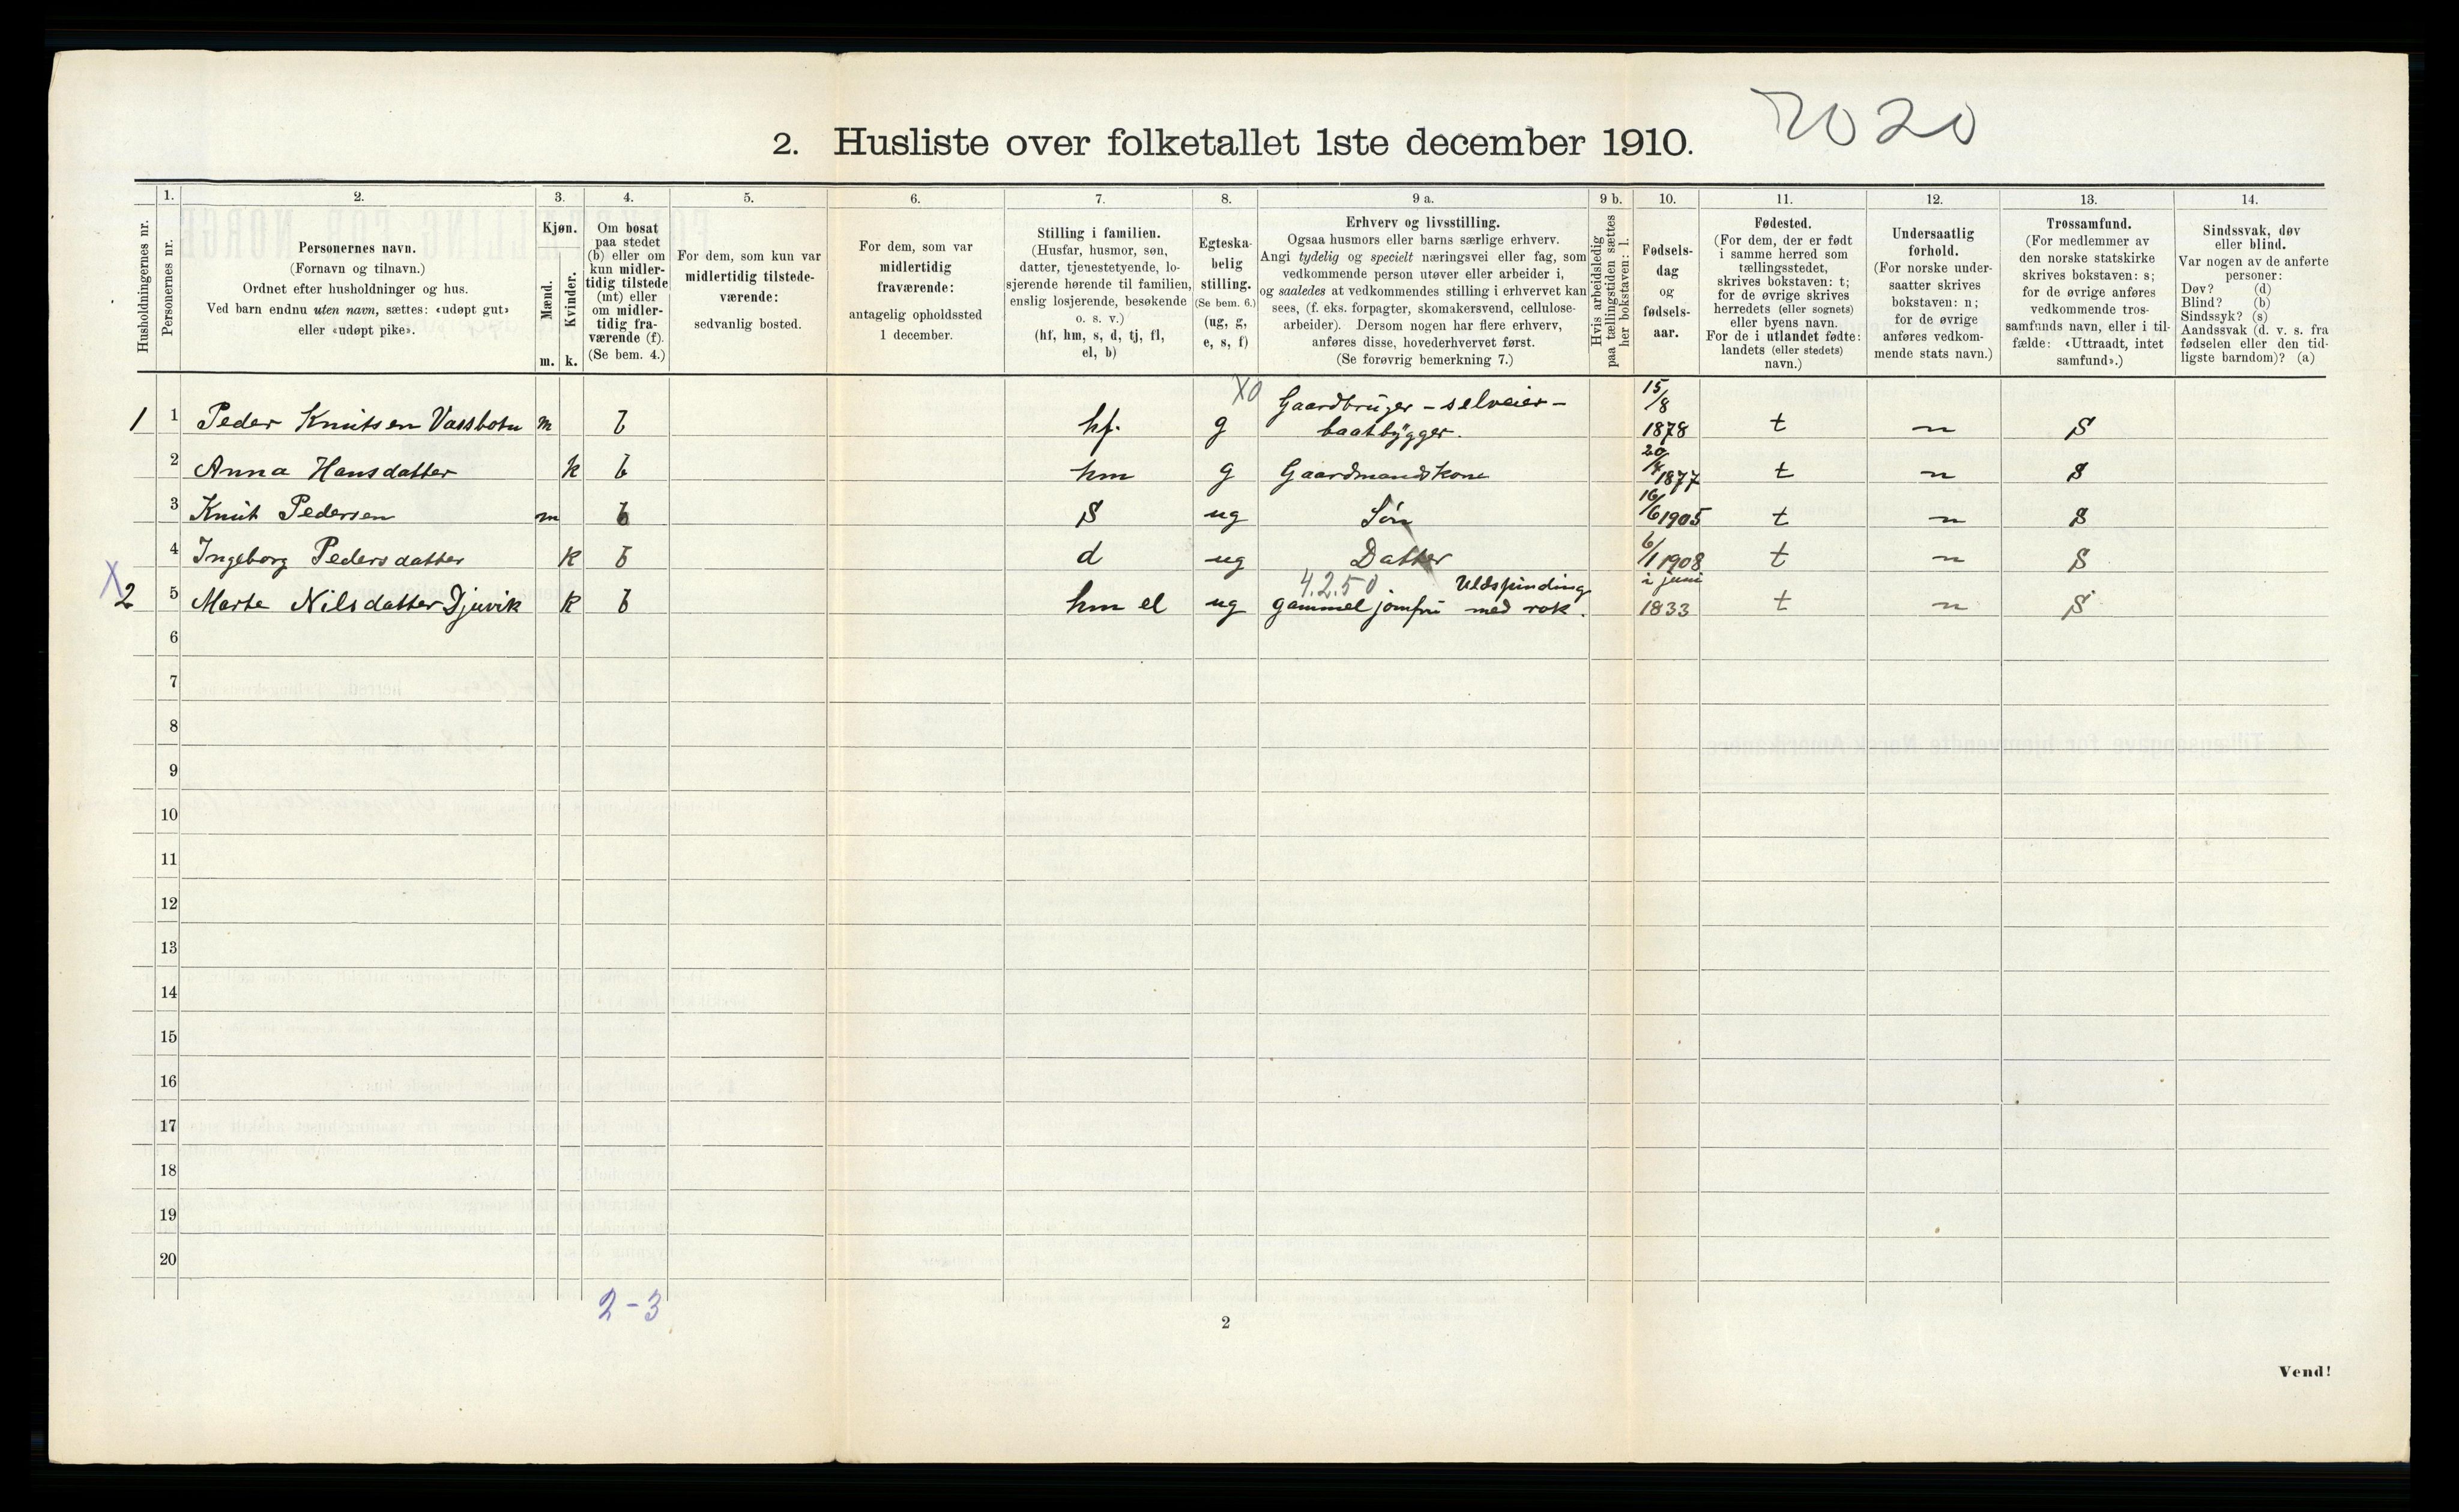 2020
2. Husliste over folketallet 1ste december 1910.
Husholdningernes nr.
1. Personernes nr.
2. Personernes navn.
(Fornavn og tilnavn.)
Ordnet efter husholdninger og hus.
Ved barn endnu uten navn, sættes: «udøpt gut»
eller «udøpt pike».
3. Kjøn.
Mænd. m.
Kvinder. k.
4. Om bosat
paa stedet
(b) eller om
kun midler-
tidig tilstede
(mt) eller
om midler-
tidig fra-
værende (f).
(Se bem. 4.)
5. For dem, som kun var
midlertidig tilstede-
værende:
sedvanlig bosted.
6. For dem, som var
midlertidig
fraværende:
antagelig opholdssted
1 december.
7. Stilling i familien.
(Husfar, husmor, søn,
datter, tjenestetyende, lo-
sjerende hørende til familien,
enslig losjerende, besøkende
o. s. v.)
(hf, hm, s, d, tj, fl,
el, b)
8. Egteska-
belig
stilling.
(Se bem. 6.)
(ug, g,
e, s, f)
9 a. Erhverv og livsstilling.
Ogsaa husmors eller barns særlige erhverv.
Angi tydelig og specielt næringsvei eller fag, som
vedkommende person utøver eller arbeider i,
og saaledes at vedkommendes stilling i erhvervet kan
sees, (f. eks. forpagter, skomakersvend, cellulose-
arbeider). Dersom nogen har flere erhverv,
anføres disse, hovederhvervet først.
(Se forøvrig bemerkning 7.)
9 b. Hvis arbeidsledig
paa tællingstiden sættes
her bokstaven: l.
10. Fødsels-
dag
og
fødsels-
aar.
11. Fødested.
(For dem, der er født
i samme herred som
tællingsstedet,
skrives bokstaven: t;
for de øvrige skrives
herredets (eller sognets)
eller byens navn.
For de i utlandet fødte:
landets (eller stedets)
navn.)
12. Undersaatlig
forhold.
(For norske under-
saatter skrives
bokstaven: n;
for de øvrige
anføres vedkom-
mende stats navn.)
13. Trossamfund.
(For medlemmer av
den norske statskirke
skrives bokstaven: s;
for de øvrige anføres
vedkommende tros-
samfunds navn, eller i til-
fælde: «Uttraadt, intet
samfund».)
14. Sindssvak, døv
eller blind.
Var nogen av de anførte
personer:
Døv? (d)
Blind? (b)
Sindssyk? (s)
Aandssvak (d. v. s. fra
fødselen eller den tid-
ligste barndom)? (a)
1 1 Peder Knutsen Vassbotn m b hf. g X0 Gaardbruger - selveier - baatbygger. 15/8 1878 t n S
2 Anna Hansdatter k b hm g Gaardmandskone 20/4 1877 t n S
3 Knut Pedersen m b S ug Søn 16/6 1905 t n S
4 Ingeborg Pedersdatter k b d ug Datter 6/1 1908 t n S
X 2 5 Marte Nilsdatter Djuvik k b hm el ug 4.2.50 gammel jomfru Uldspinding med rok. i juni 1833 t n S
6
7
8
9
10
11
12
13
14
15
16
17
18
19
20
2-3
2
Vend!